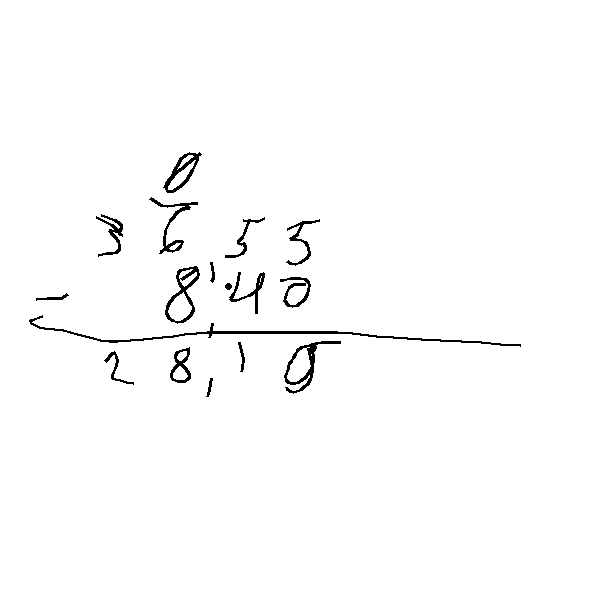 0
3655
- 8,40
28,15